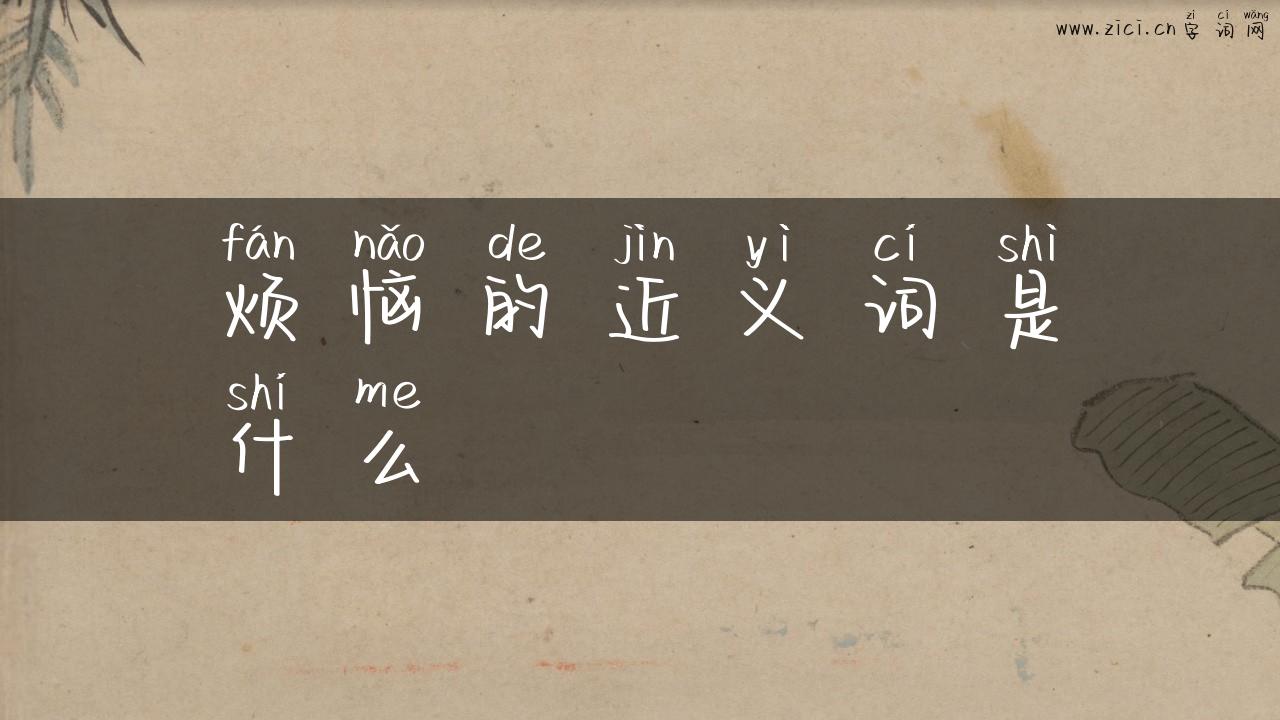 zì cí wǎng
www.zici.cn 字词网
fán nǎo de jìn yì cí shì
烦恼的近义词是
shí me
什么